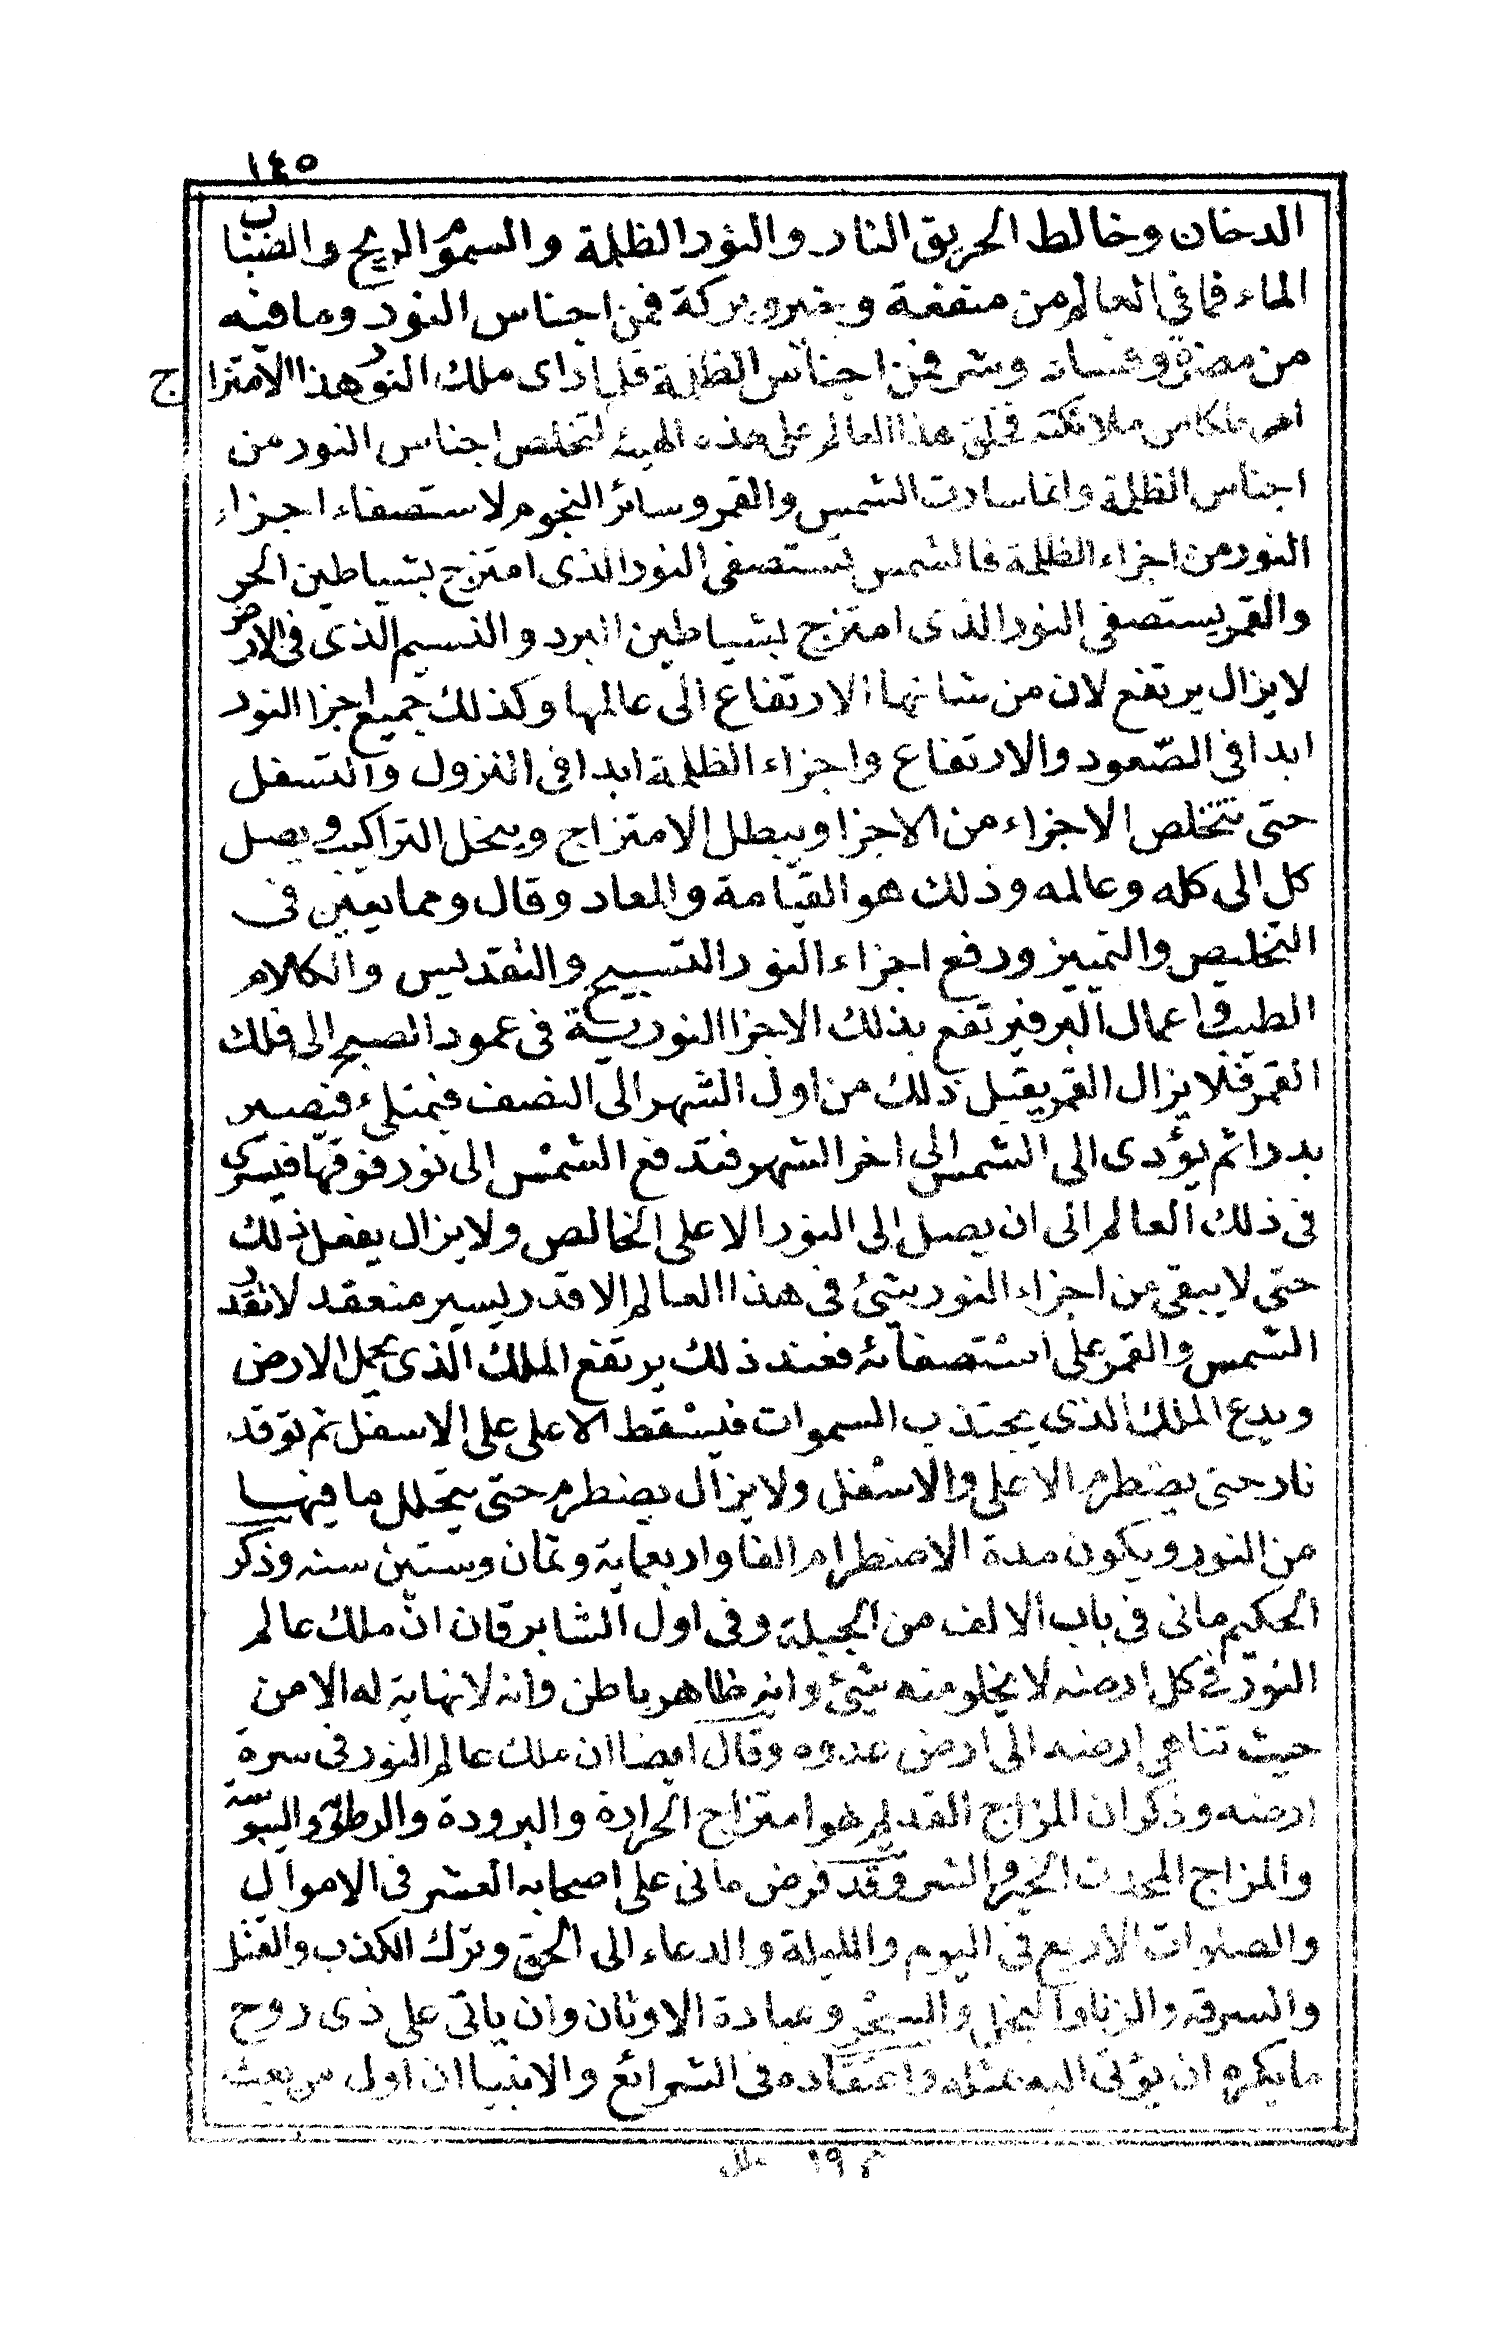 ١٤٥
الدخان وخالط الحريق النار والنور الظلمة والسموم الريح والضباب
الماء فما فى العالم من منفعة وخير وبركة فمن اجناس النور وما فيه
من مضرة وفساد وشر فمن اجناس الظلمة فلما راى ملك النور هذا الامتزاج
امر ملكا من ملائكته فخلق هذا العالم على هذه الهيئه لتخلص اجناس النور من
اجناس الظلمة وانما سارت الشمس والقمر وسائر النجوم لاستصفاء اجزاء
النور من اجزاء الظلمة فالشمس تستصفى النور الذى امتزج بشياطين الحر
والقمر يستصفى النور الذى امتزج بشياطين البرد والنسيم الذى فى الارض
لا يزال يرتفع لان من شانها الارتفاع الى عالمها وكذلك جميع اجزا النور
ابدا فى الصّعود والارتفاع واجزاء الظلمة ابدا فى النزول والتسفل
حتى تتخلص الاجزاء من الاجزا ويبطل الامتزاج وينحل التراكيب ويصل
كل الى كله وعالمه وذلك هو القيامة والمعاد وقال ومما يعين فى
التخليص والتمييز ورفع اجزاء النور التسبيح والتقديس والكلام
الطيب واعمال البر فيرتفع بذلك الاجزا النورية فى عمود الصبح الى فلك
القمر فلا يزال القمر يقبل ذلك من اول الشهر الى النصف فيمتلىء فيصير
بدرا ثم يؤدى الى الشمس الى اخر الشهر فتدفع الشمس الى نور فوقها فيسرى
فى ذلك العالم الى ان يصل الى النور الاعلى الخالص ولا يزال يفعل ذلك
حتى لا يبقى من اجزاء النور شئ فى هذا العالم الا قدر يسير منعقد لا تقدر
الشمس والقمر على استصفائه فعند ذلك يرتفع الملك الذى يحمل الارض
ويدع الملك الذى يجتذب السموات فيسقط الاعلى على الاسفل ثم توقد
نار حتى يضطرم الاعلى والاسفل ولا يزال يضطرم حتى يتحلل ما فيها
من النور ويكون مدة الاضطرام الفا واربعماية وثمان وستين سنه وذكر
الحكيم مانى فى باب الالف من الجبلة وفى اول الشابرقان ان ملك عالم
النور فى كل ارضه لا يخلو منه شئ وانه ظاهر باطن وانه لا نهاية له الا من
حيث تناهى ارضه الى ارض عدوه وقال ايضا ان ملك عالم النور فى سرة
ارضه وذكر ان المزاج القديم هو امتزاج الحرارة والبرودة والرطوبة واليبوسة
والمزاج المحدث الخير والشر وقد فرض مانى على اصحابه العشر فى الاموال
والصلوات الاربع فى اليوم والليلة والدعاء الى الحق وترك الكذب والقتل
والسرقه والزنا والبخل والسحر وعبادة الاوثان وان ياتى على ذى روح
ما يكره ان يؤتى اليه بمثله واعتقاده فى الشرائع والانبيا ان اول من بعث
م ١٩ ملل